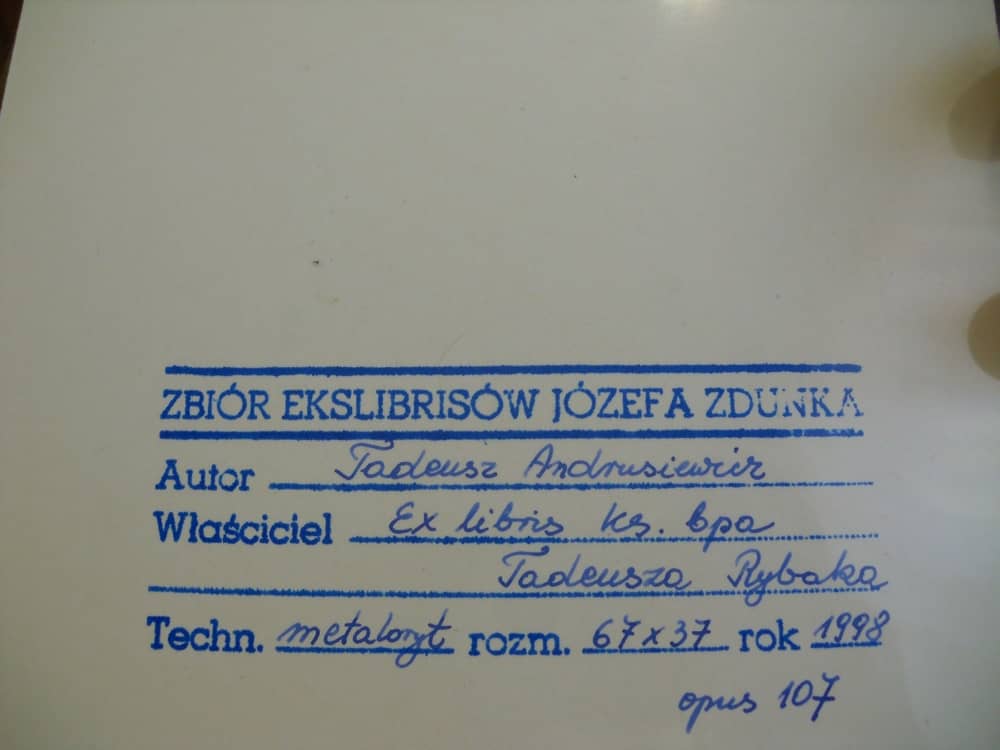 ZBIÓR EKSLIBRISÓW JÓZEFA ZDUNKA
Autor Tadeusz Andrusiewicz
Właściciel Ex libris ks. bpa
Tadeusza Rybaka
Techn. metaloryt rozm. 67x37 rok 1998
opus 107